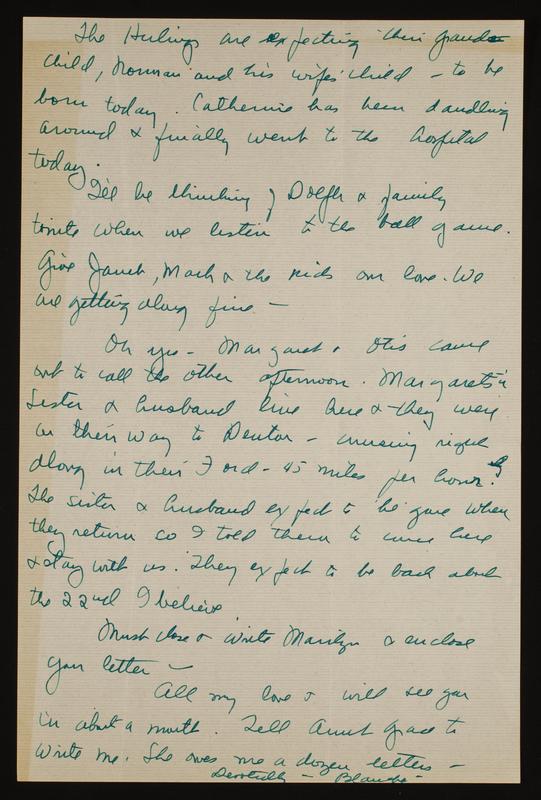 The Hulings are expecting their grand
child, Norman and his wife's child - to be
born today. Catherine has been dawdling
around & finally went to the hospital
today.
I'll be thinking of Dolph & family
tonite when we listen to the ball game.
Give Janet, Mark & the kids our love. We
are getting along fine -
Oh yes - Margaret & Otis came
out to call the other afternoon. Margaret's
sister & husband live here & they were
on their way to Denton - cruising right
along in their Ford - 45 miles per hour!
The sister & husband expect to be gone when
they return so I told them to come here
& stay with us. They expect to be back about
the 22nd I believe
Must close & write Marilyn & enclose
your letter -
All my love & will see you
in about a month. Tell Aunt Grace to
write me. She owes me a dozen letters -
Devotedly - Blanche -